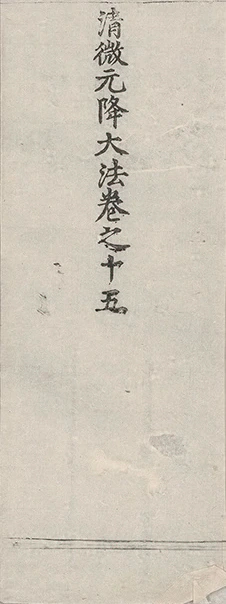 清微元降大法卷之十五